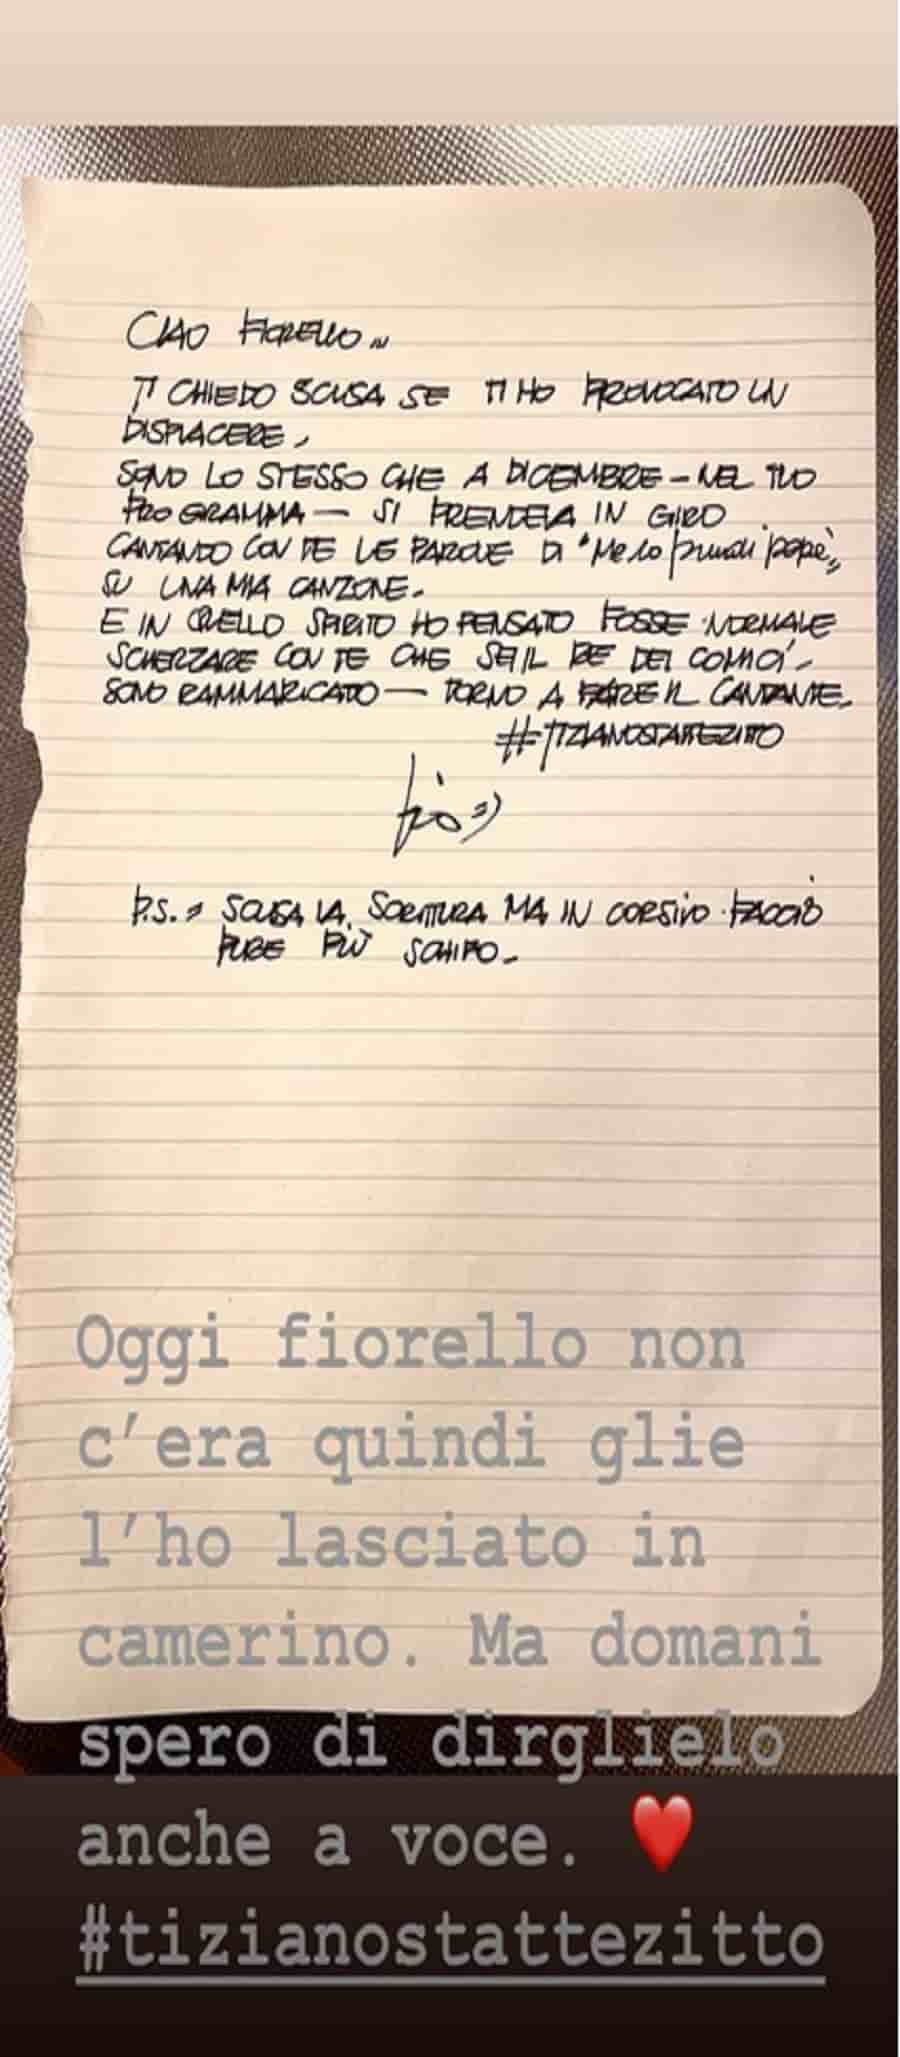 CIAO FIORELLO...
TI CHIEDO SCUSA SE TI HO PROVOCATO UN
DISPIACERE.
SONO LO STESSO CHE A DICEMBRE - NEL TUO
PROGRAMMA - SI PRENDEVA IN GIRO
CANTANDO CON TE LE PAROLE DI "Me lo prendi papè"
SU UNA MIA CANZONE.
E IN QUELLO SPIRITO HO PENSATO FOSSE NORMALE
SCHERZARE CON TE CHE SEI IL RE DEI COMICI.
SONO RAMMARICATO - TORNO A FARE IL CANTANTE.
#TIZIANOSTATTEZITTO
P.S. = SCUSA LA SCRITTURA MA IN CORSIVO FACCIO
PURE PIÙ SCHIFO.
Oggi fiorello non
c'era quindi glie
l'ho lasciato in
camerino. Ma domani
spero di dirglielo
anche a voce. ❤️
#tizianostattezitto